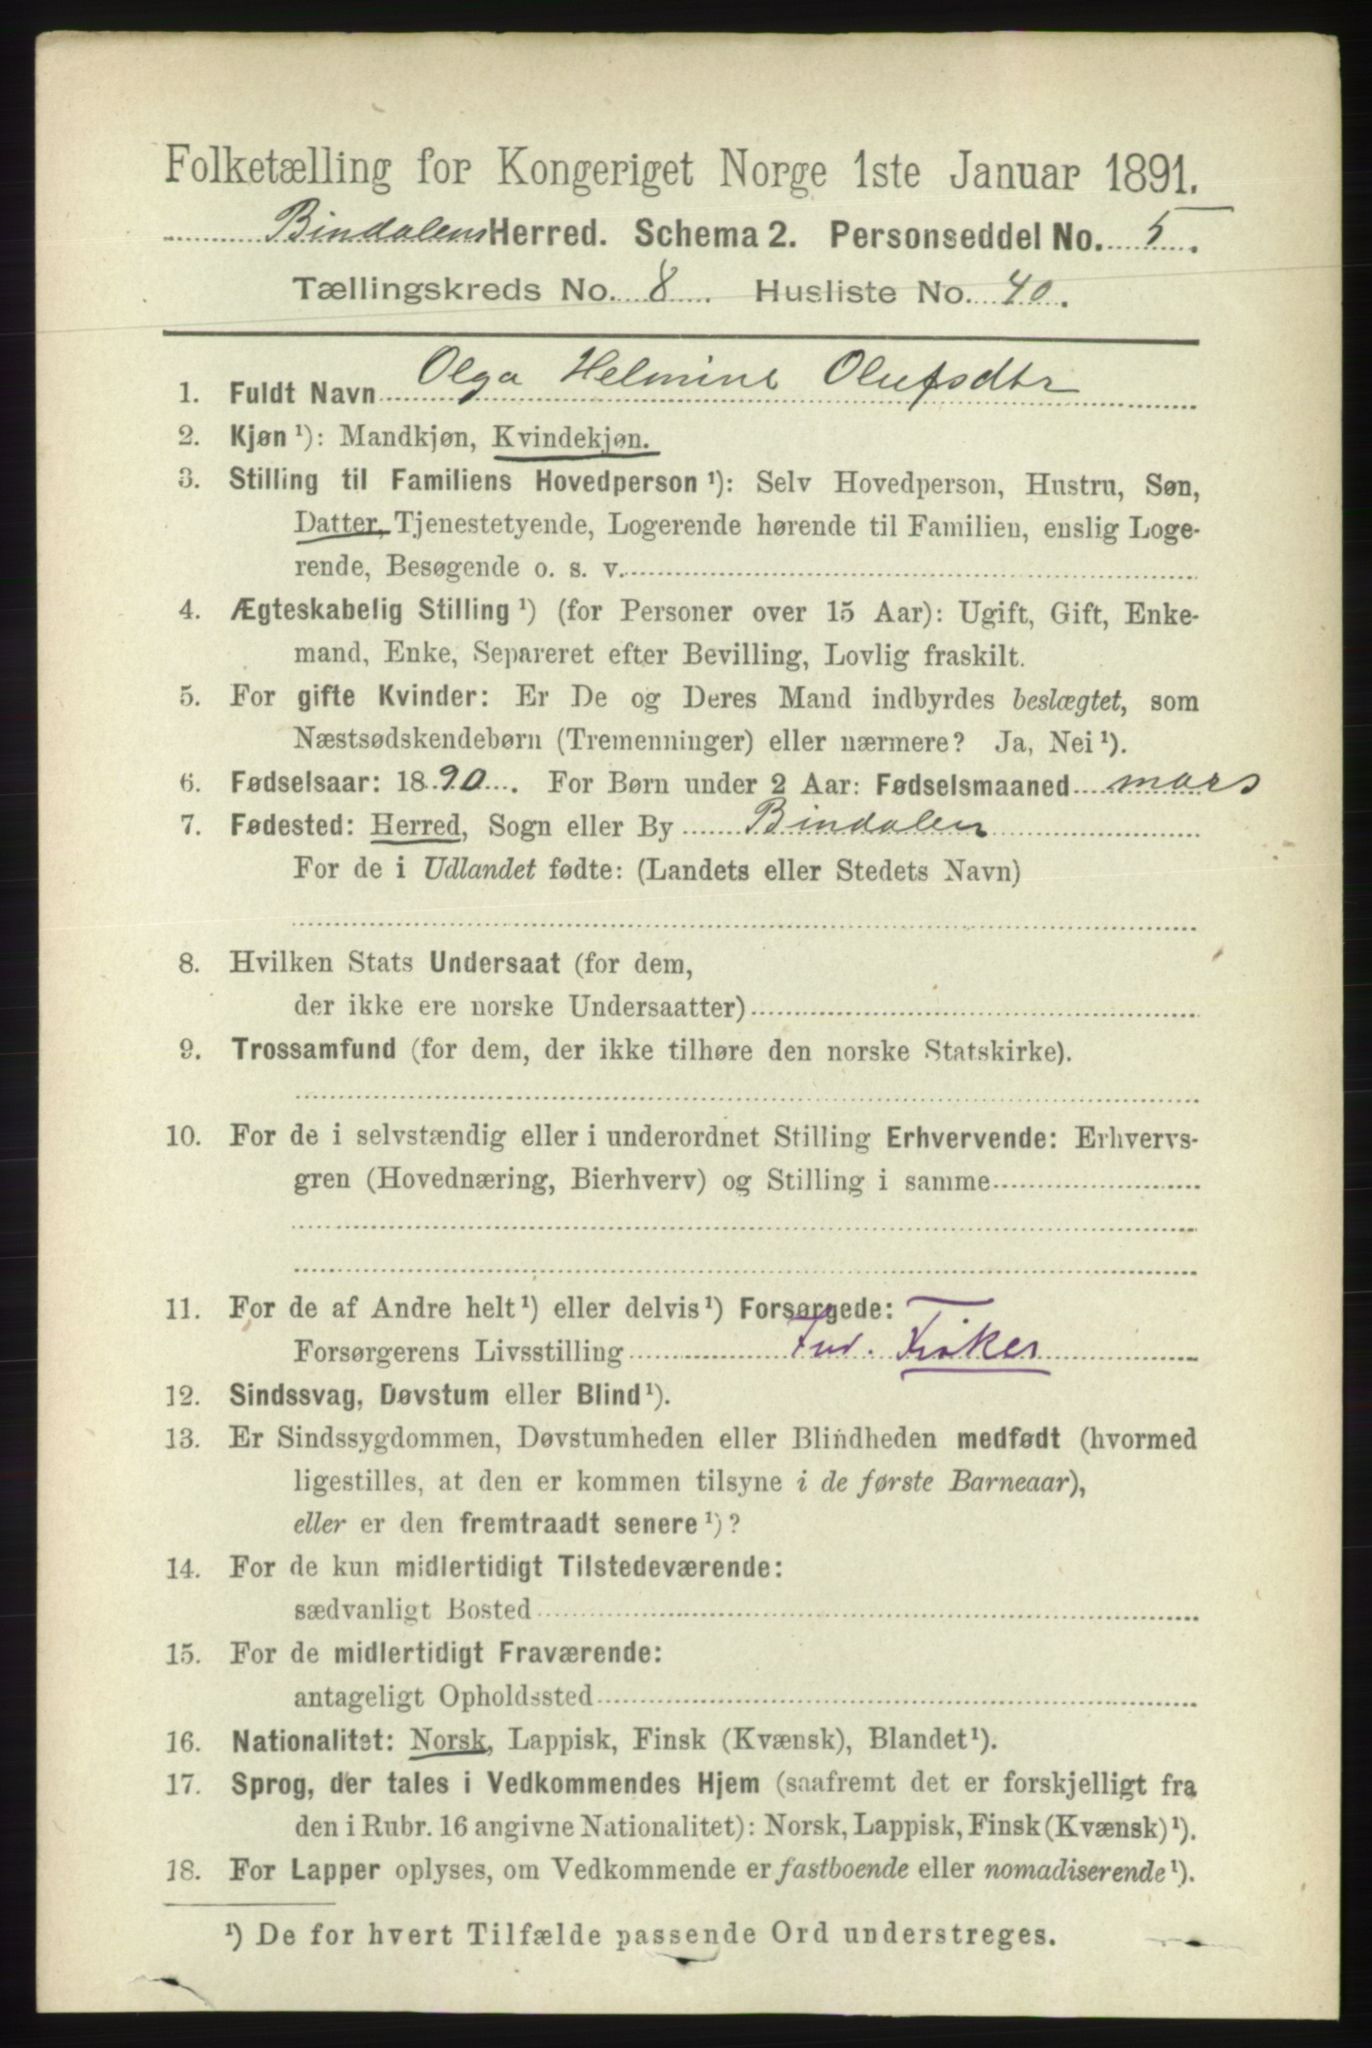 Folketælling for Kongeriget Norge 1ste Januar 1891.
Bindalens Herred. Schema 2. Personseddel No. 5.
Tællingskreds No. 8. Husliste No. 40.
1. Fuldt Navn Olga Helmine Olufsdtr
2. Kjøn ¹): Mandkjøn, Kvindekjøn.
3. Stilling til Familiens Hovedperson ¹): Selv Hovedperson, Hustru, Søn,
Datter, Tjenestetyende, Logerende hørende til Familien, enslig Loge-
rende, Besøgende o. s. v.
4. Ægteskabelig Stilling ¹) (for Personer over 15 Aar): Ugift, Gift, Enke-
mand, Enke, Separeret efter Bevilling, Lovlig fraskilt.
5. For gifte Kvinder: Er De og Deres Mand indbyrdes beslægtet, som
Næstsødskendebørn (Tremenninger) eller nærmere? Ja, Nei ¹).
6. Fødselsaar: 1890. For Børn under 2 Aar: Fødselsmaaned mars
7. Fødested: Herred, Sogn eller By Bindalen
For de i Udlandet fødte: (Landets eller Stedets Navn)
8. Hvilken Stats Undersaat (for dem,
der ikke ere norske Undersaatter)
9. Trossamfund (for dem, der ikke tilhøre den norske Statskirke).
10. For de i selvstændig eller i underordnet Stilling Erhvervende: Erhvervs-
gren (Hovednæring, Bierhverv) og Stilling i samme
11. For de af Andre helt ¹) eller delvis ¹) Forsørgede:
Forsørgerens Livsstilling Ind. Fisker
12. Sindssvag, Døvstum eller Blind ¹).
13. Er Sindssygdommen, Døvstumheden eller Blindheden medfødt (hvormed
ligestilles, at den er kommen tilsyne i de første Barneaar),
eller er den fremtraadt senere ¹)?
14. For de kun midlertidigt Tilstedeværende:
sædvanligt Bosted
15. For de midlertidigt Fraværende:
antageligt Opholdssted
16. Nationalitet: Norsk, Lappisk, Finsk (Kvænsk), Blandet ¹).
17. Sprog, der tales i Vedkommendes Hjem (saafremt det er forskjelligt fra
den i Rubr. 16 angivne Nationalitet): Norsk, Lappisk, Finsk (Kvænsk) ¹).
18. For Lapper oplyses, om Vedkommende er fastboende eller nomadiserende ¹).
¹) De for hvert Tilfælde passende Ord understreges.